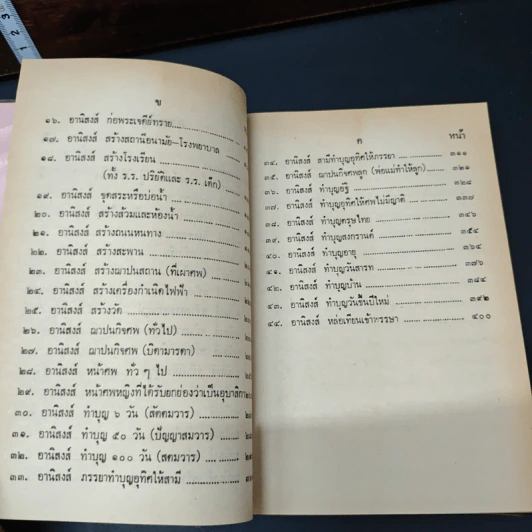 ข
๑๖. อานิสงส์ ก่อพระเจดีย์ทราย
๑๗. อานิสงส์ สร้างสถานีอนามัย-โรงพยาบาล
๑๘. อานิสงส์ สร้างโรงเรียน
(ทั้ง ร.ร. ปริยัติและ ร.ร. เด็ก)
๑๙. อานิสงส์ ขุดสระหรือบ่อน้ำ
๒๐. อานิสงส์ สร้างส้วมและห้องน้ำ
๒๑. อานิสงส์ สร้างถนนหนทาง
๒๒. อานิสงส์ สร้างสะพาน
๒๓. อานิสงส์ สร้างฌาปนสถาน (ที่เผาศพ)
๒๔. อานิสงส์ สร้างเครื่องกำเนิดไฟฟ้า
๒๕. อานิสงส์ สร้างวัด
๒๖. อานิสงส์ ฌาปนกิจศพ (ทั่วไป)
๒๗. อานิสงส์ ฌาปนกิจศพ (บิดามารดา)
๒๘. อานิสงส์ หน้าศพ ทั่ว ๆ ไป
๒๙. อานิสงส์ หน้าศพหญิงที่ได้รับยกย่องว่าเป็นอุบาสิกา
๓๐. อานิสงส์ ทำบุญ ๖ วัน (สัตตมวาร)
๓๑. อานิสงส์ ทำบุญ ๕๐ วัน (ปัญญาสมวาร)
๓๒. อานิสงส์ ทำบุญ ๑๐๐ วัน (สตมวาร)
๓๓. อานิสงส์ ภรรยาทำบุญอุทิศให้สามี
ค
หน้า
๓๔. อานิสงส์ สามีทำบุญอุทิศให้ภรรยา ๓๑๑
๓๕. อานิสงส์ ฌาปนกิจศพลูก (พ่อแม่ทำให้ลูก) ๓๒๑
๓๖. อานิสงส์ ทำบุญอัฐิ ๓๒๘
๓๗. อานิสงส์ ทำบุญอุทิศให้ศพไม่มีญาติ ๓๓๗
๓๘. อานิสงส์ ทำบุญตรุษไทย ๓๔๖
๓๙. อานิสงส์ ทำบุญสงกรานต์ ๓๕๔
๔๐. อานิสงส์ ทำบุญอายุ ๓๖๔
๔๑. อานิสงส์ ทำบุญวันสารท ๓๗๖
๔๒. อานิสงส์ ทำบุญบ้าน ๓๘๔
๔๓. อานิสงส์ ทำบุญวันขึ้นปีใหม่ ๓๙๒
๔๔. อานิสงส์ หล่อเทียนเข้าพรรษา ๔๐๐